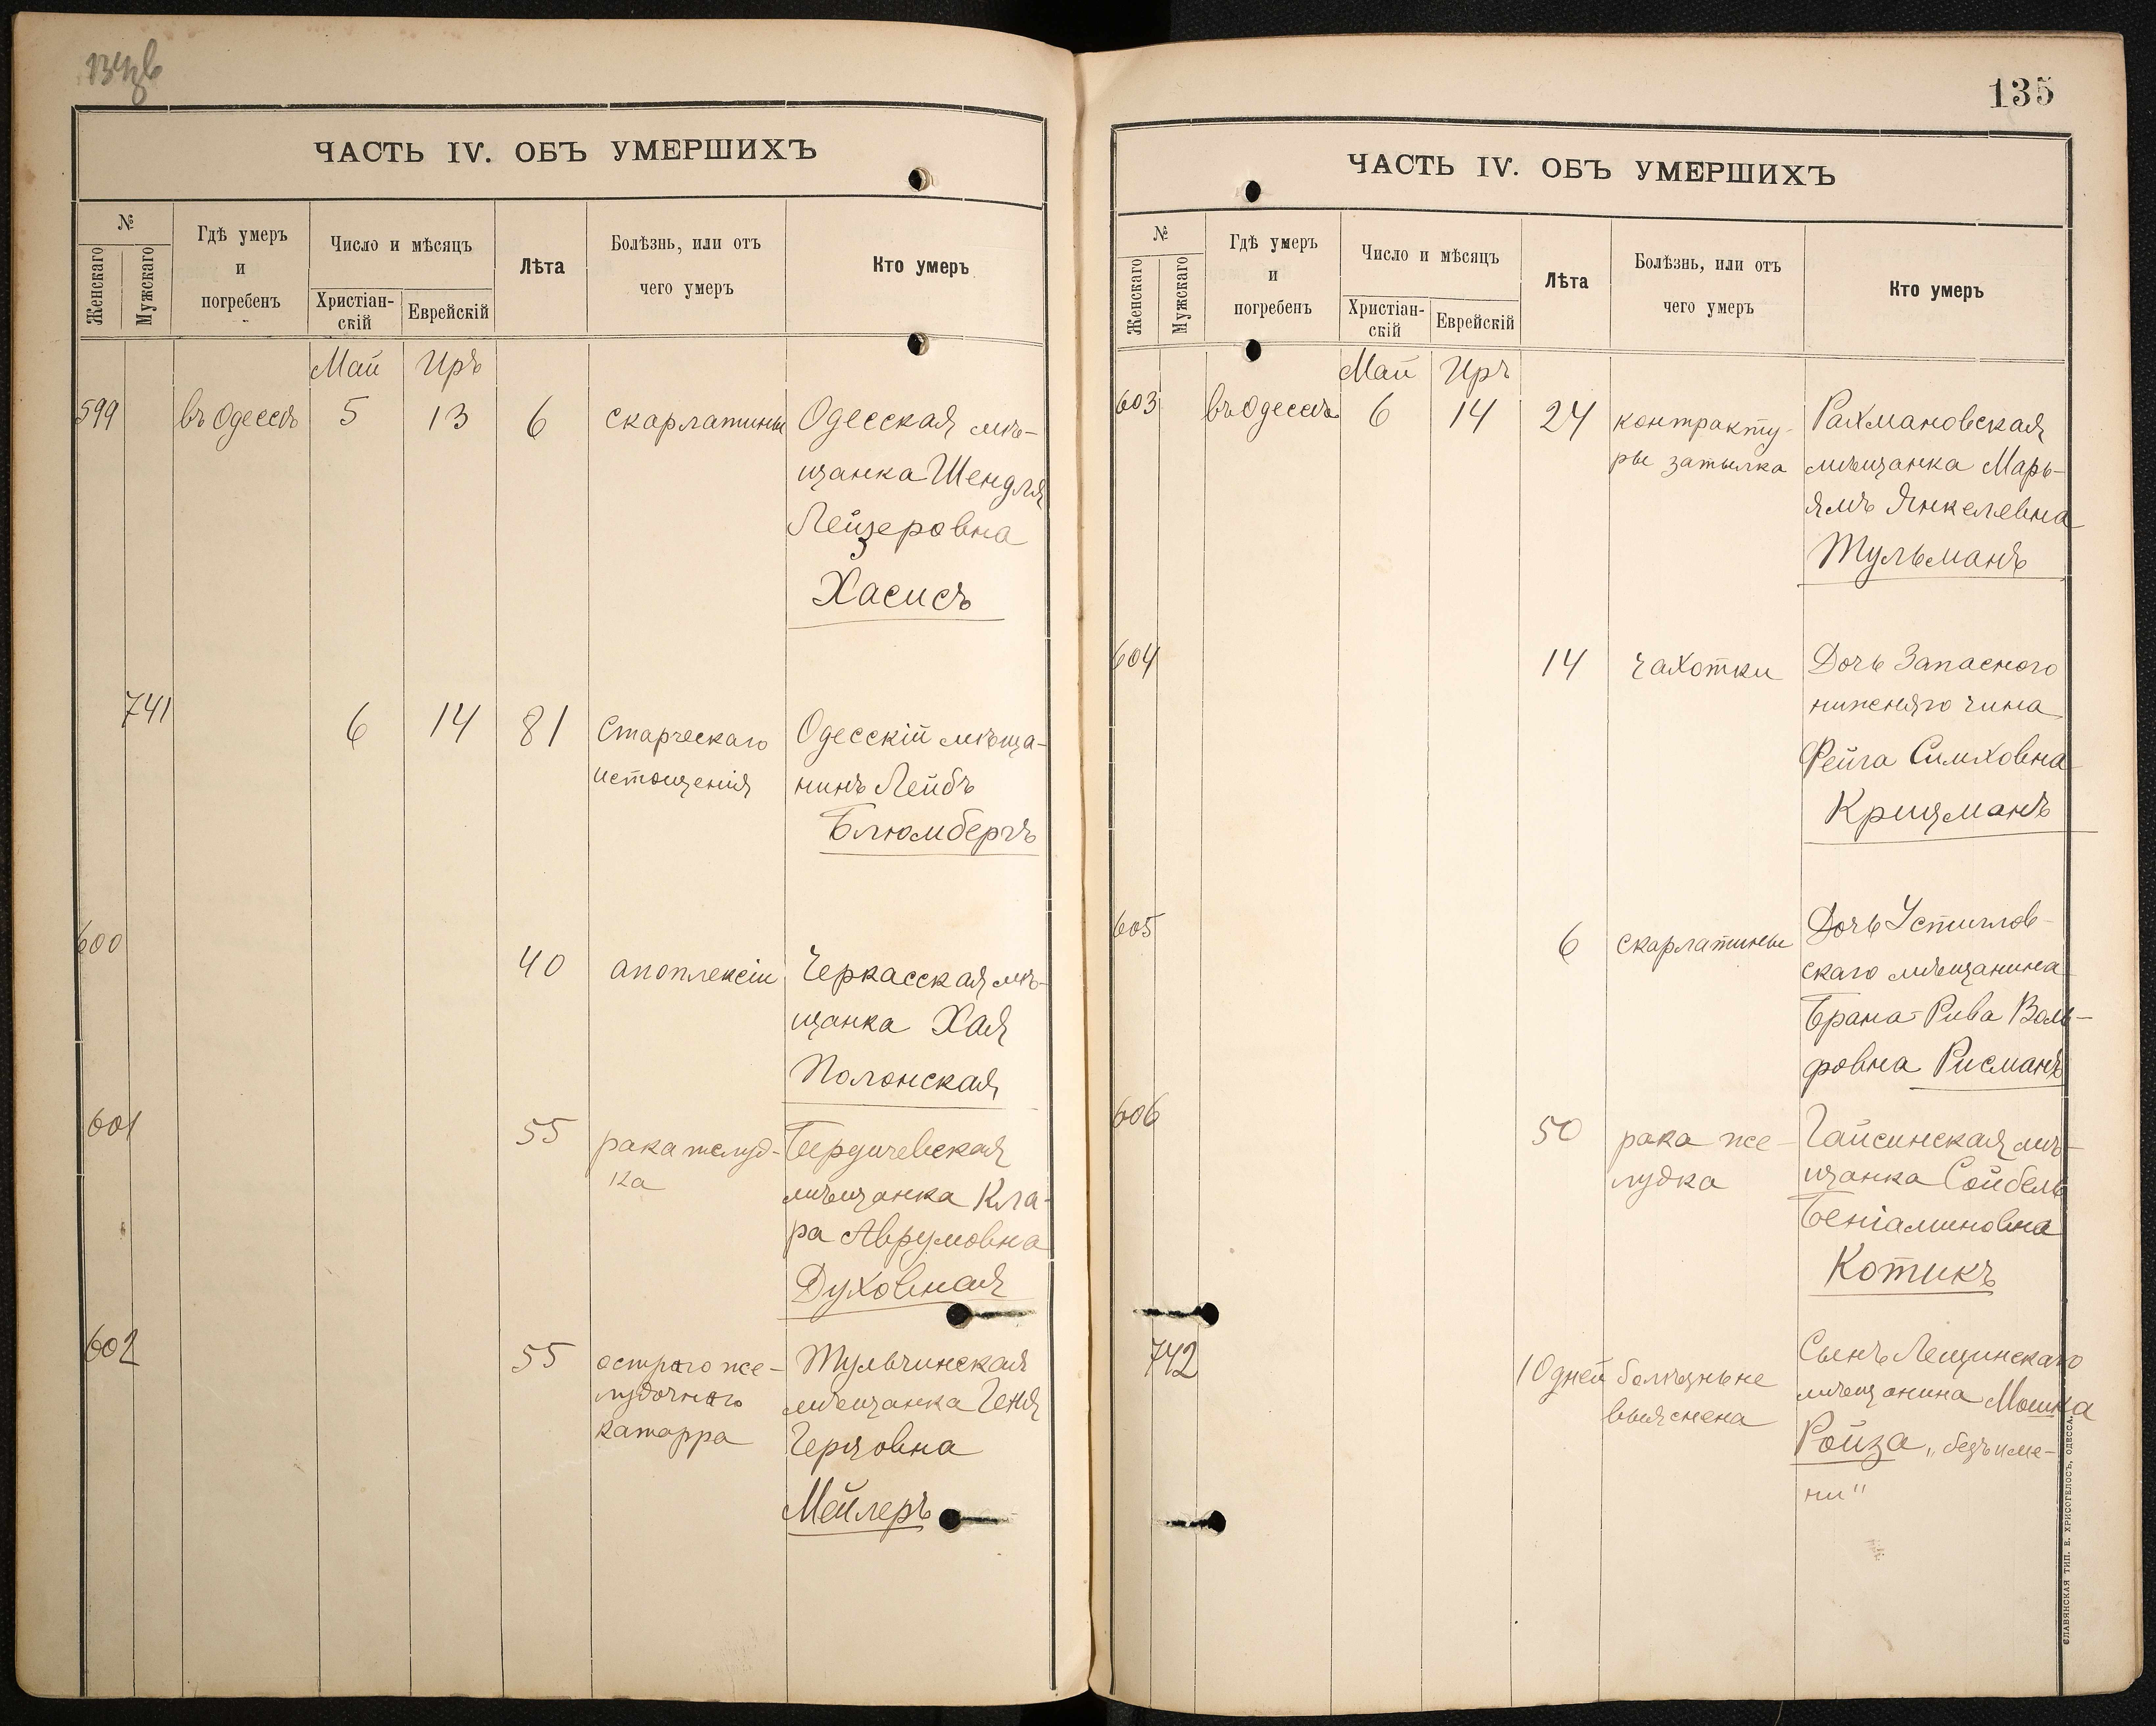 134об
ЧАСТЬ IV. ОБЪ УМЕРШИХЪ
№
Женскаго
Мужскаго
Гдѣ умеръ
и
погребенъ
Число и мѣсяцъ
Христіан-
скій
Еврейскій
Лѣта
Болѣзнь, или отъ
чего умеръ
Кто умеръ
Май Иръ
599 въ Одессѣ 5 13 6 скарлатины Одесская мѣ-
щанка Шендля
Лейзеровна
Хасисъ
741 6 14 81 Старческаго Одесскій мѣща-
истощенія нинъ Лейбъ
Блюмбергъ
600 40 апоплексіи Черкасская мѣ-
щанка Хая
Полонская
601 55 рака желуд- Бердичевская
ка мѣщанка Кла-
ра Аврумовна
Духовная
602 55 остраго же- Тульчинская
лудочнаго мѣщанка Геня
катарра Герцовна
Мейлеръ
135
ЧАСТЬ IV. ОБЪ УМЕРШИХЪ
№
Женскаго
Мужскаго
Гдѣ умеръ
и
погребенъ
Число и мѣсяцъ
Христіан-
скій
Еврейскій
Лѣта
Болѣзнь, или отъ
чего умеръ
Кто умеръ
Май Иръ
603 въ Одессѣ 6 14 24 контракту- Рахмановская
ры затылка мѣщанка Марь-
ямъ Янкелевна
Тульманъ
604 14 чахотки Дочь Запасного
нижняго чина
Фейга Симховна
Крицманъ
605 6 скарлатины Дочь Устилов-
скаго мѣщанина
Брана-Рива Воль-
фовна Рисманъ
606 50 рака же- Гайсинская мѣ-
лудка щанка Сойбель
Беніаминовна
Котикъ
742 10 дней болѣзнь не Сынъ Лещинскаго
выяснена мѣщанина Мошка
Ройза „безъ име-
ни"
СЛАВЯНСКАЯ ТИП. Е. ХРИСОГЕЛОСЪ, ОДЕССА.